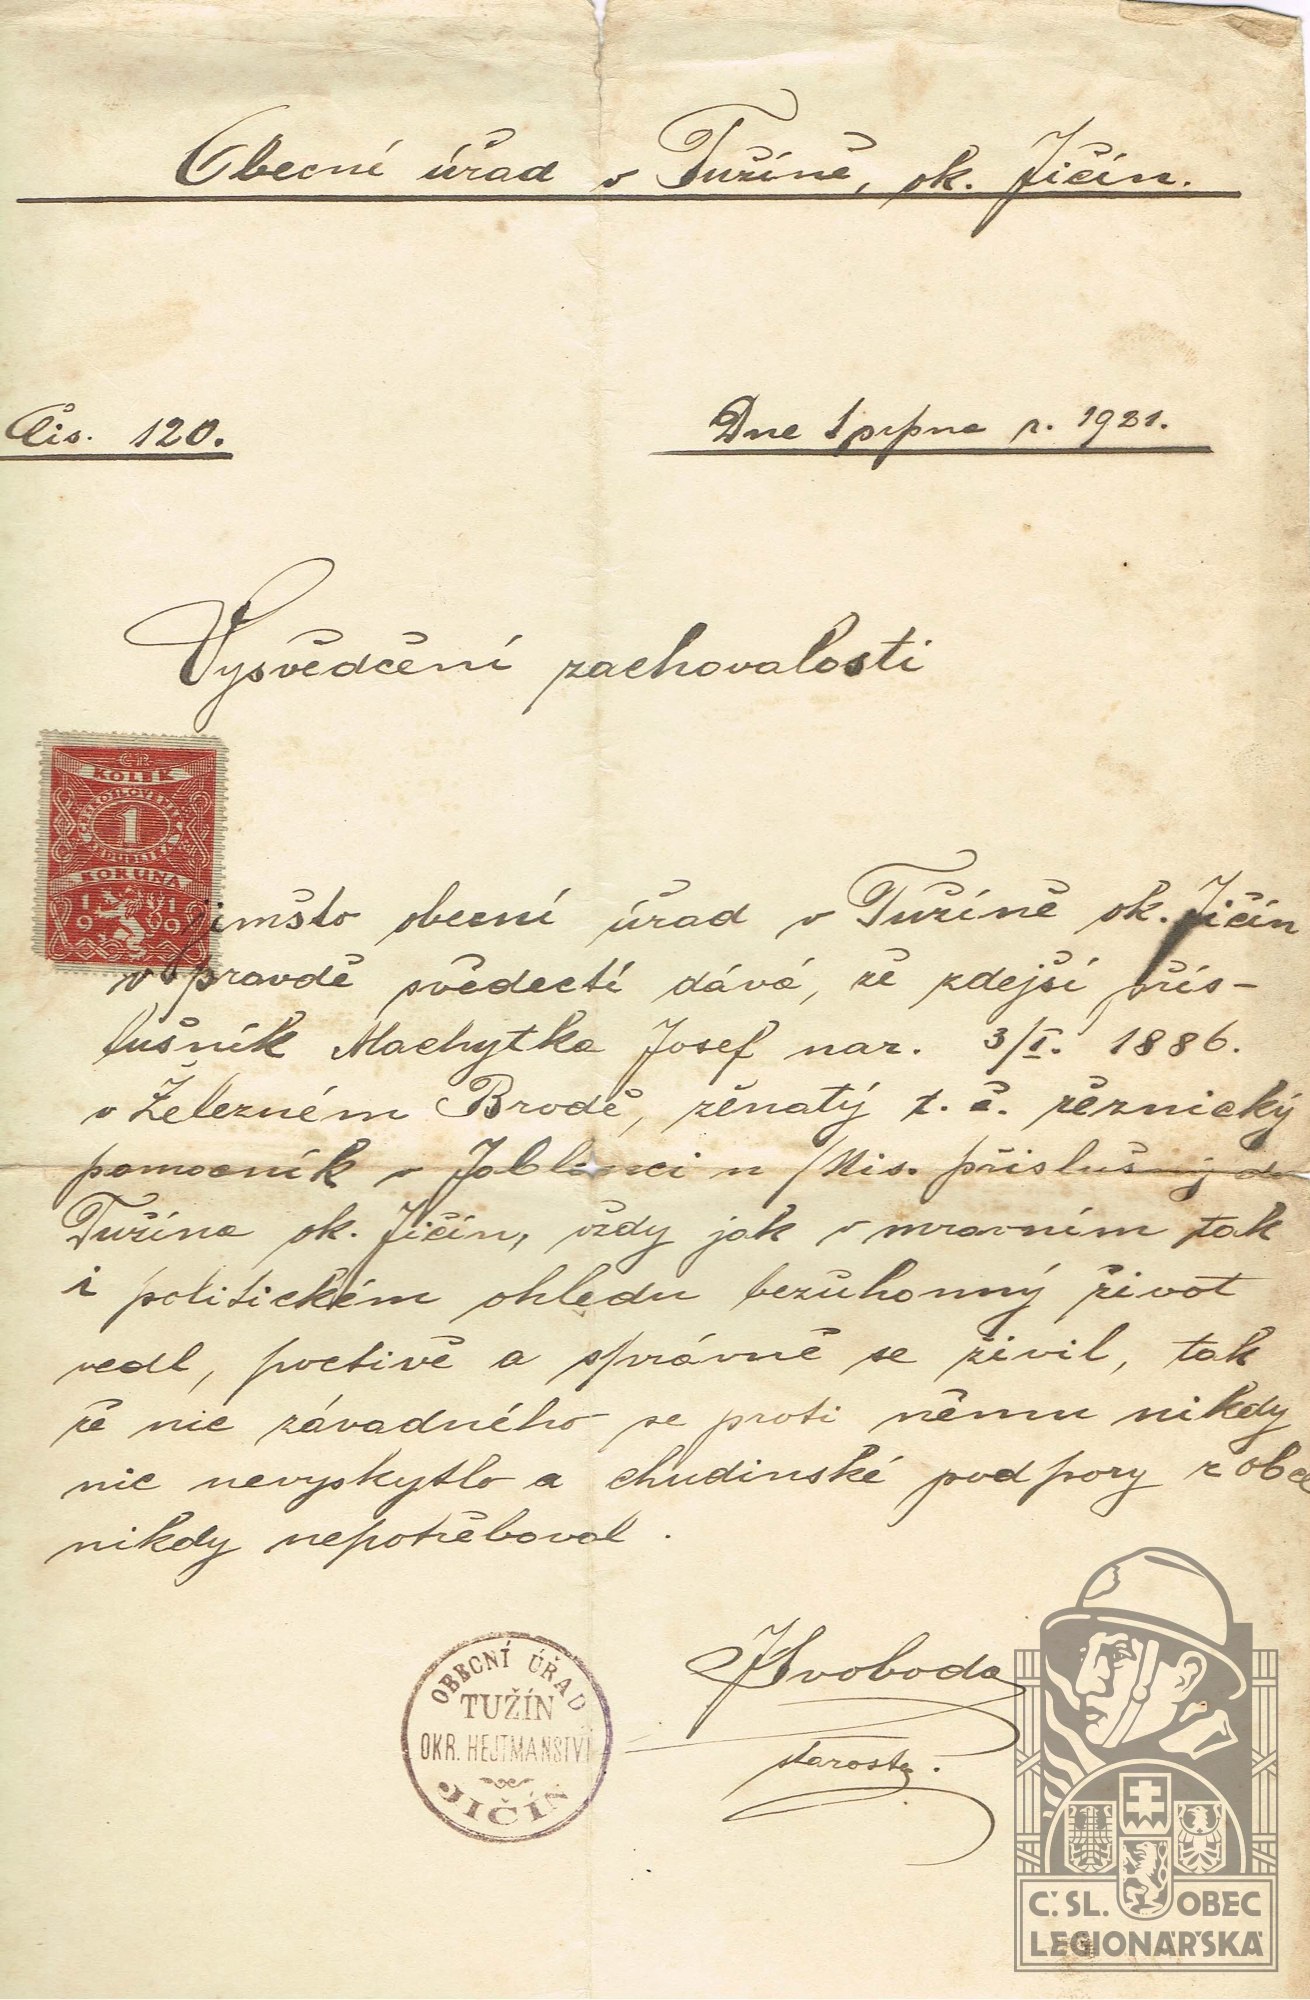 Obecní úřad v Tužíně, ok. Jičín.
Čis. 120.
Dne 1 srpna r. 1921.
Vysvědčení zachovalosti
ČR
KOLEK
1
KORUNA
1919
jimšto obecní úřad v Tužíně ok. Jičín
v pravdě svědectí dává, že zdejší přís-
lušník Machytka Josef nar. 3/I. 1886.
v Železném Brodě, ženatý t. č. řeznický
pomocník v Jablonci n /Nis. příslušný do
Tužína ok. Jičín, vždy jak v mravním tak
i politickém ohledu bezúhonný život
vedl, poctivě a správně se živil, tak
že nic závadného se proti němu nikdy
nic nevyskytlo a chudinské podpory z obce
nikdy nepotřeboval.
JSvoboda
starosta.
OBECNÍ ÚŘAD
TUŽÍN
OKR. HEJTMANSTVÍ
JIČÍN
Č. SL. OBEC
LEGIONÁŘSKÁ